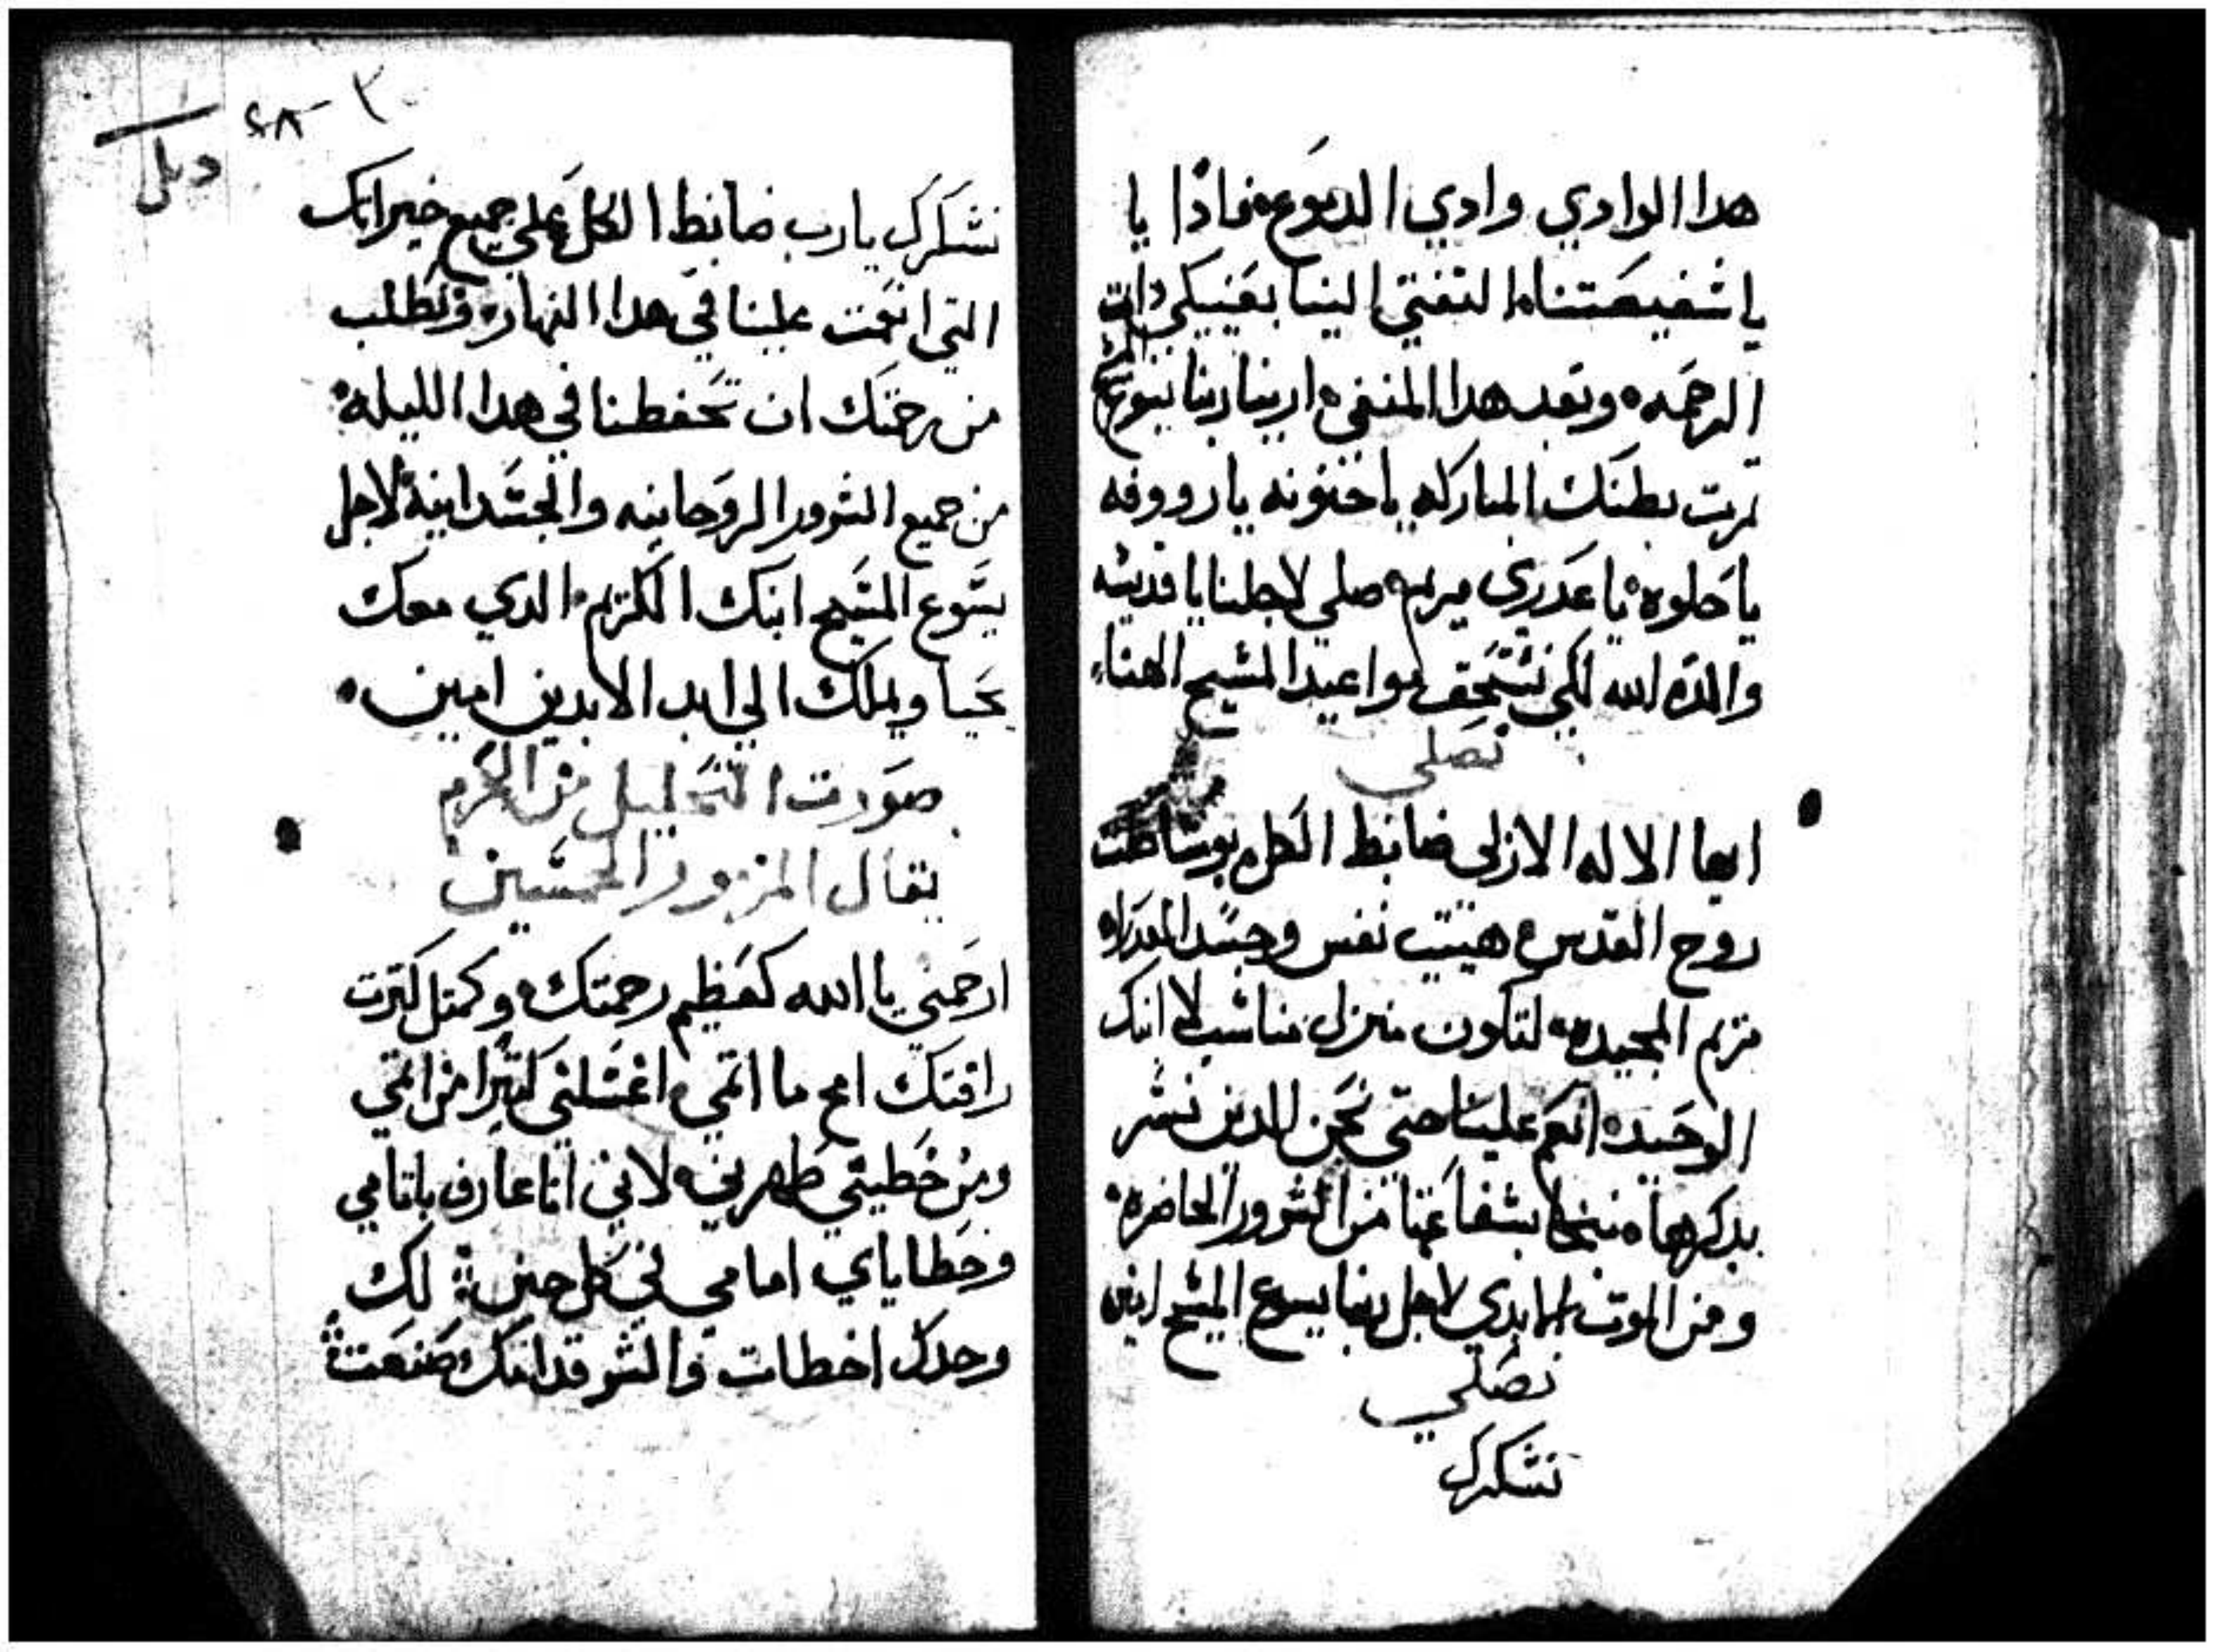 هدا الوادي وادي الدموع فمادا يا
يا شفيعتنا التفتي الينا بعنيكي دات
الرحمه وبعد هدا المنفي ارينا ربنا يسوع المسيح
تمرت بطنك المباركه يا حنونه يا رووفه
يا حلوه يا عدري مريم صلي لاجلنا يا قديسه
والدة الله لكي نستحق مواعيد المسيح الهنا
نصلي
ايها الاله الازلي ضابط الكل بوساطت
روح القدس هييت نفس وجسد العدراه
مريم المجيده لتكون منزل مناسب لابنك
الوحيد انعم علينا حتى نحن الدين نسر
بدكرها ننجا بشفاعتها من الشرور الحاضره
ومن الموت الابدي لاجل ربنا يسوع المسيح ابنك
نصلي
نشكرك
٢٨ - ٢
نشكرك يا رب ضابط الكل علي جميع خيراتك
التي انعمت علينا في هدا النهار ونطلب
من رحمتك ان تحفطنا في هدا الليله
من جميع الشرور الروحانيه والجسدانية لاجل
يسوع المسيح ابنك الكريم الدي معك
يحيا ويملك الي ابد الابدين امين
صورت التحليل من الحرم
يقال المزمور الخمسين
ارحمني يا الله كعظيم رحمتك وكمتل كترت
رافتك امح ما اتمي اغسلني كتيرا من اتمي
ومن خطيتي طهرني لاني انا عارف باتامي
وخطاياي امامي في كل حين لك
وحدك اخطات والشر قدامك صنعت